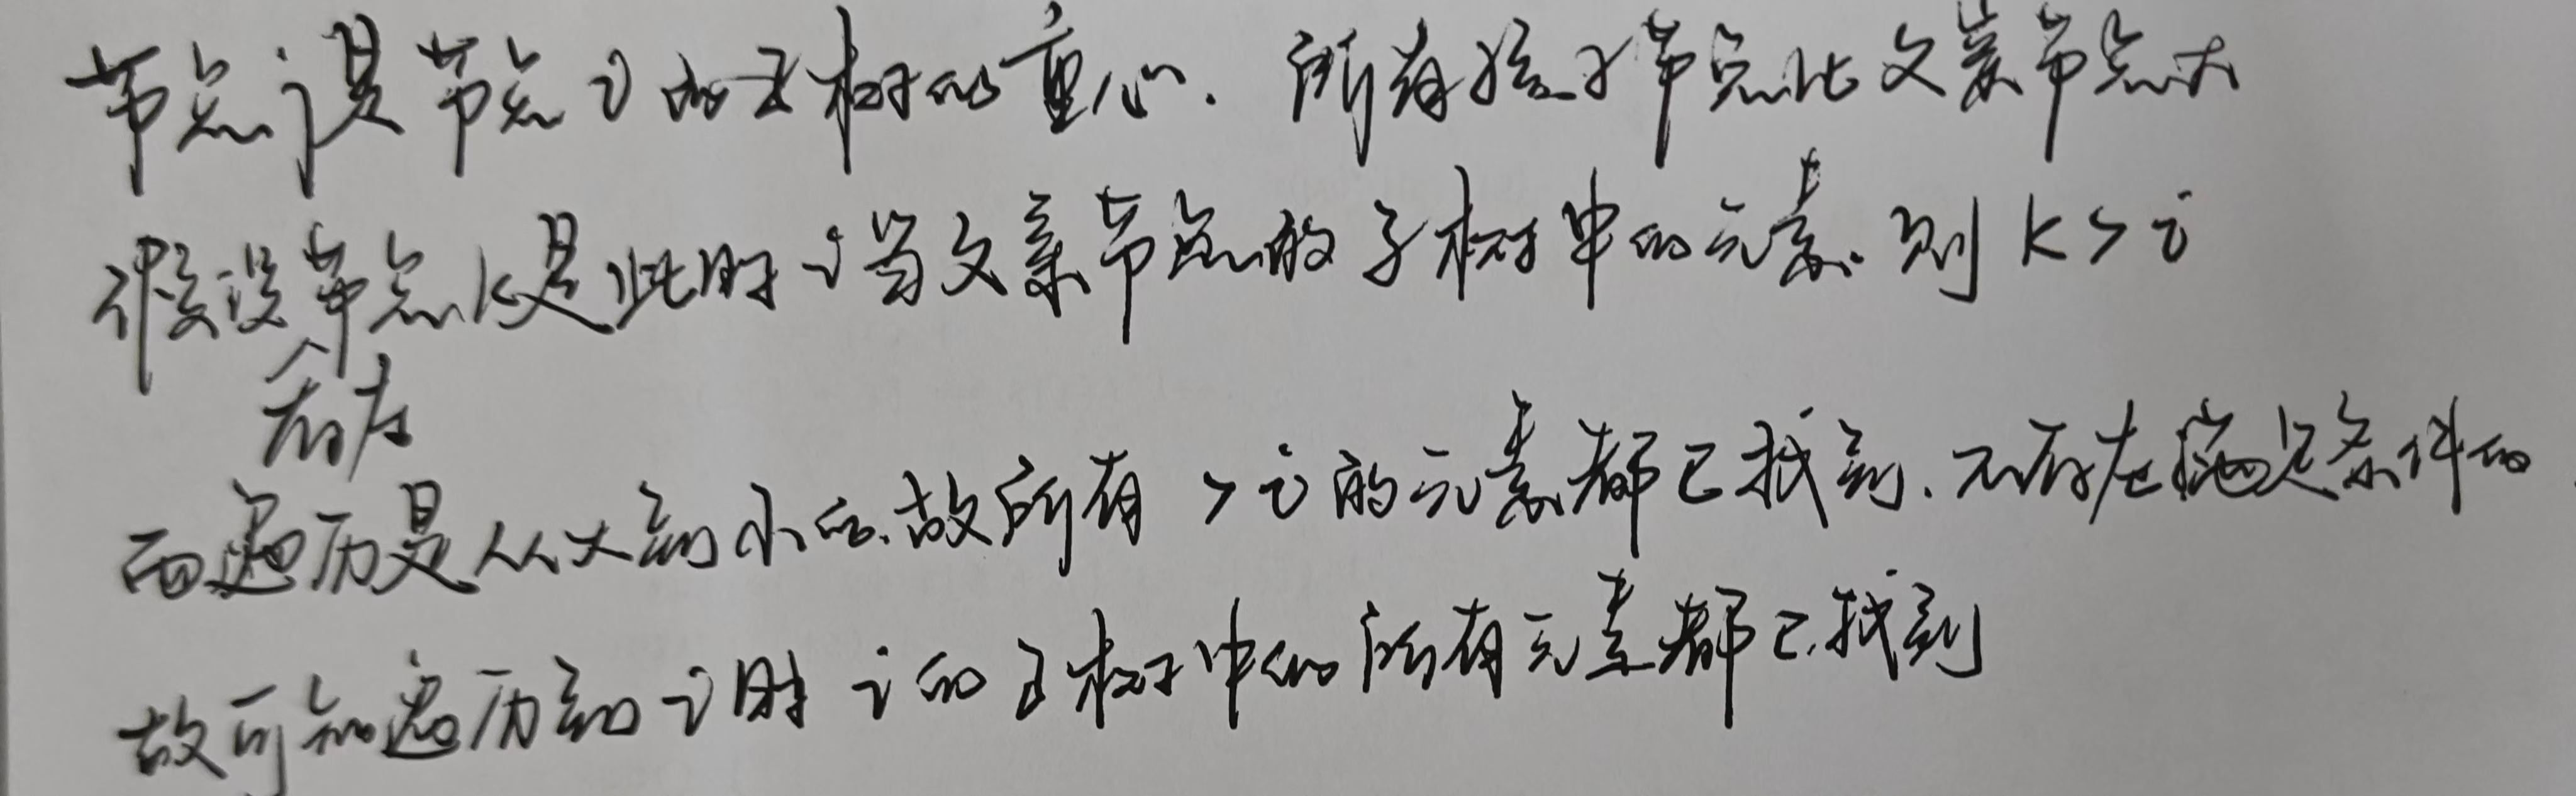 节点j是节点i的子树的重心. 所有孩子节点比父亲节点大
假设节点k是此时i当父亲节点的子树中的元素. 则 k>i
存在
而遍历是从大到小的.故所有 >i 的元素都已找到.不存在满足条件的.
故可知遍历到i时 i的子树中的所有元素都已找到